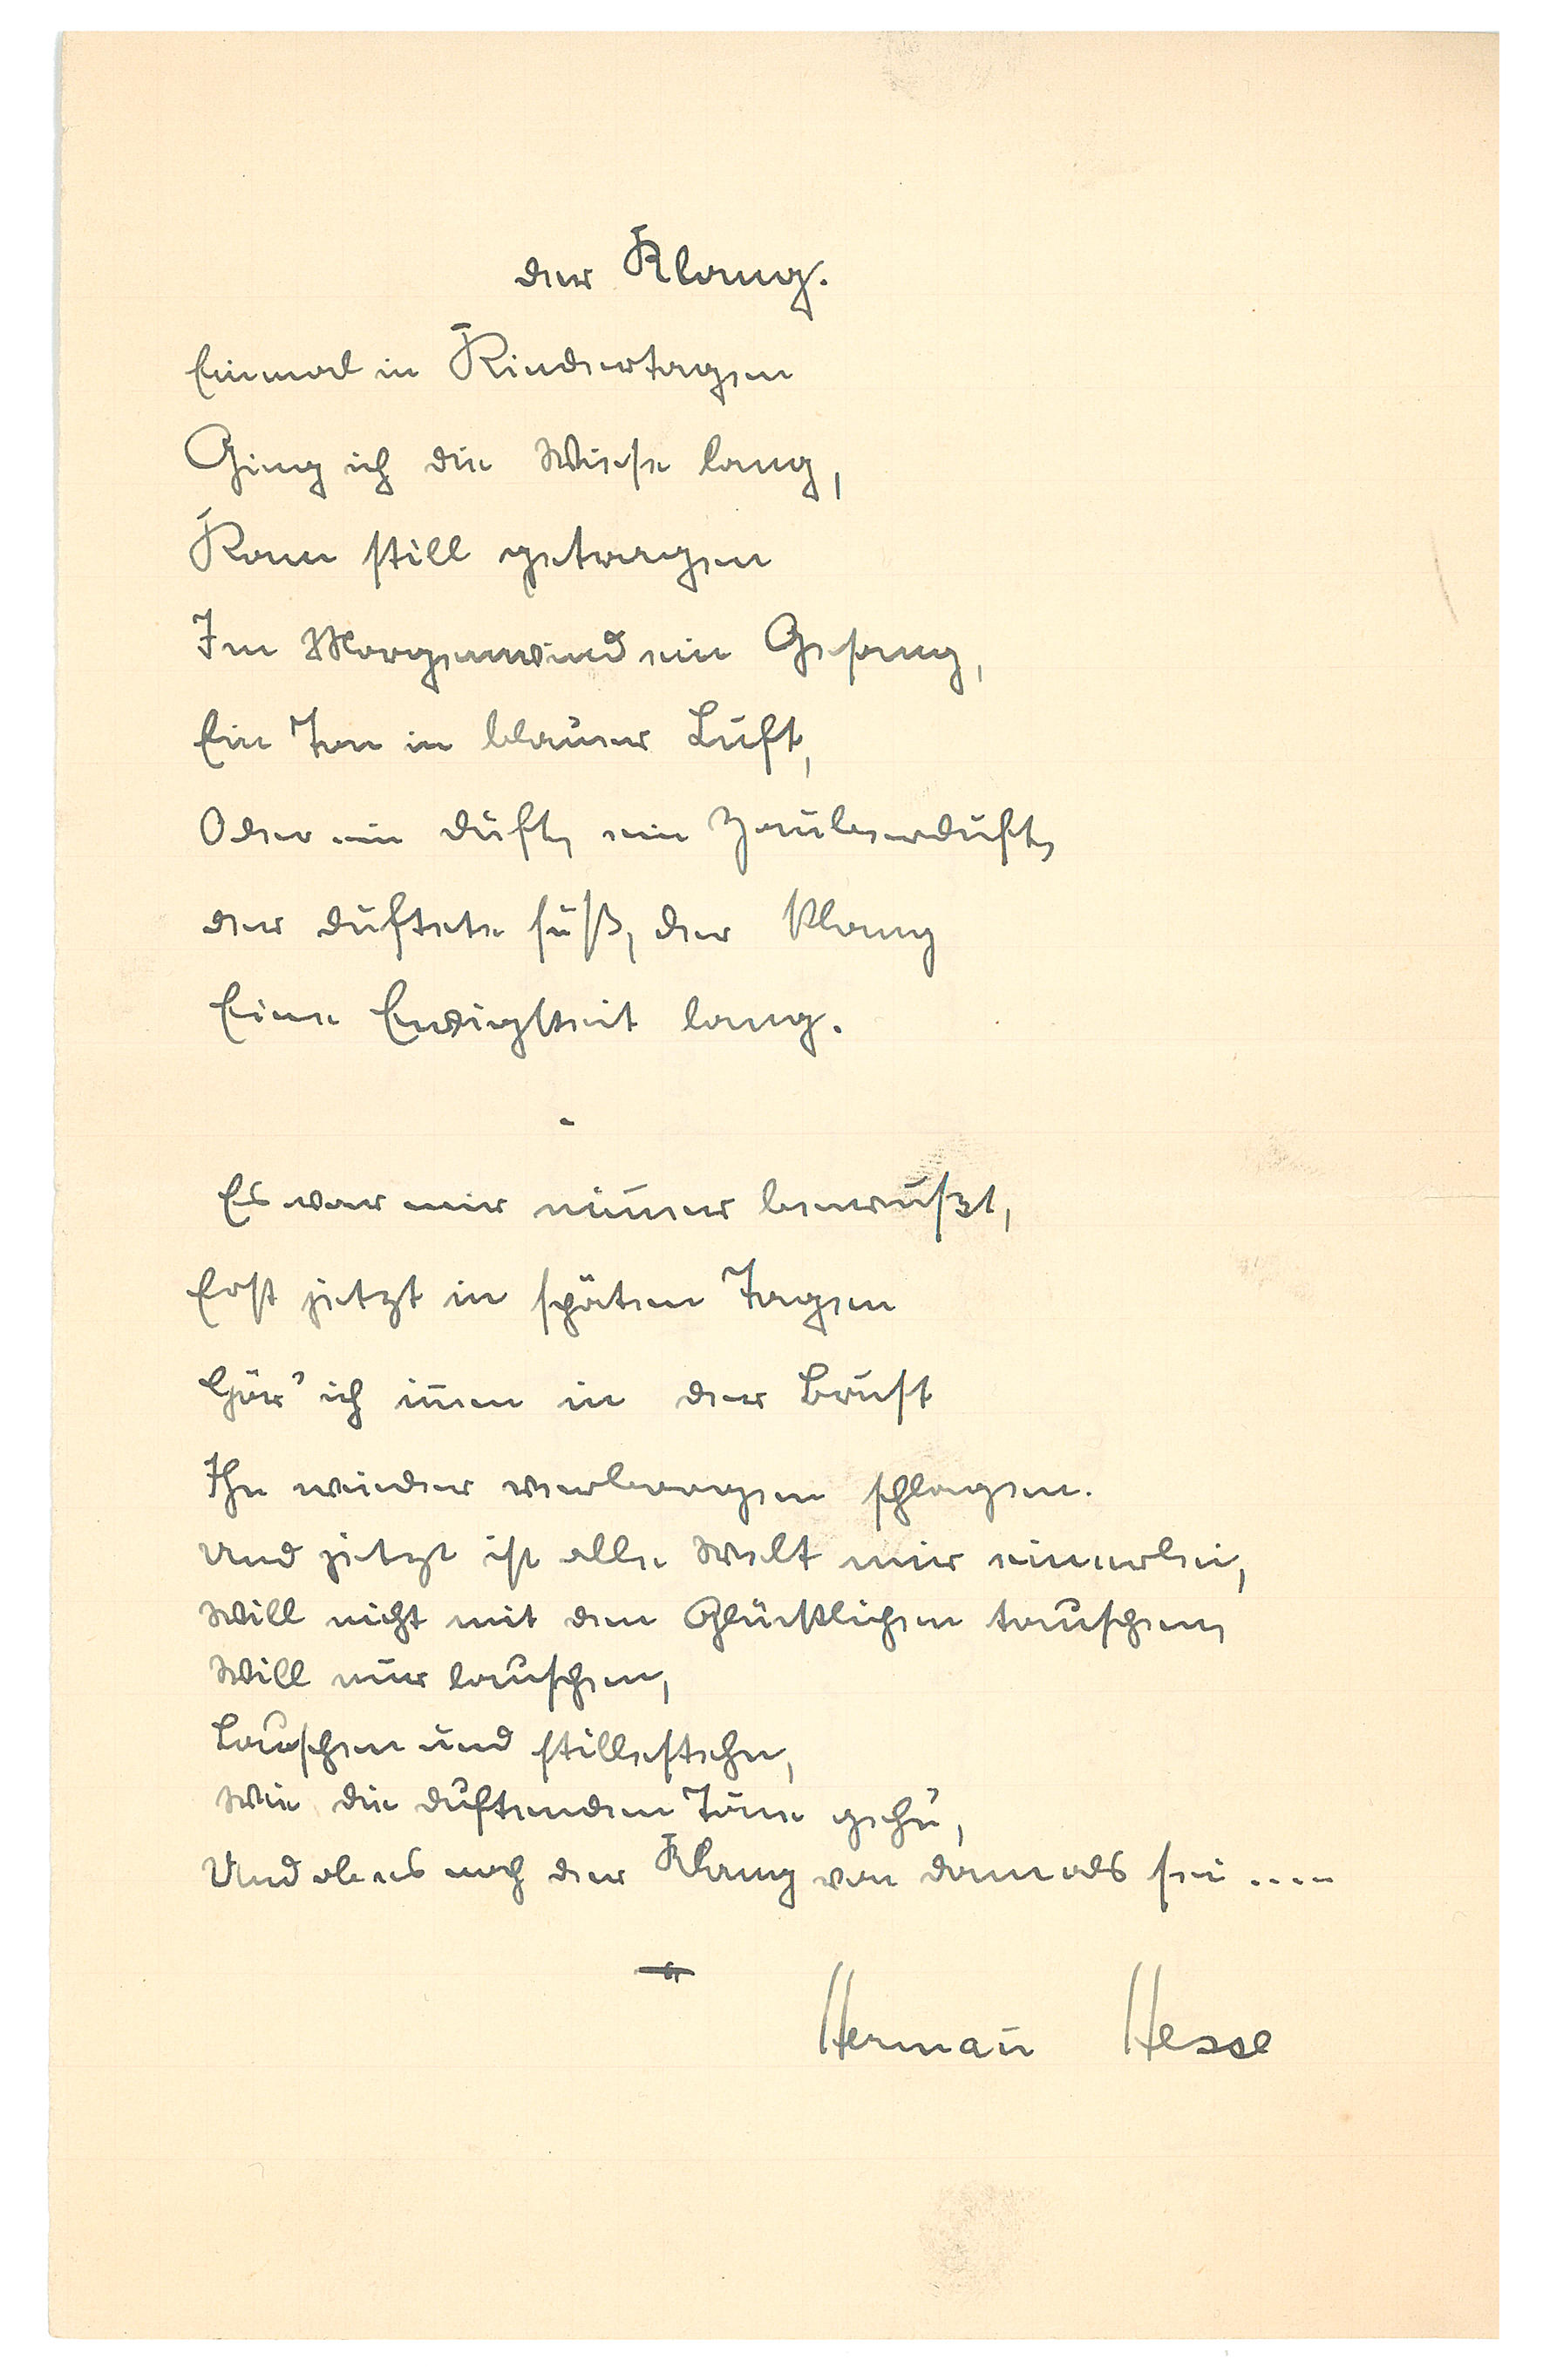 der Klang.
Einmal in Kindertagen
Ging ich die Wiese lang,
Kam still getragen
Im Morgenwind ein Gesang,
Ein Ton in blauer Luft,
Oder ein Duft, ein Zauberduft,
der duftete süß, der klang
Eine Ewigkeit lang.
-
Es war mir nim̅er bewußt,
Erst jetzt in späten Tagen
Hör' ich in̅en in der Brust
Ihn wieder verborgen schlagen.
Und jetzt ist alle Welt mir einerlei,
Will nicht mit den Glücklichen tauschen,
Will nur lauschen,
Lauschen und stillestehn,
Wie die duftenden Töne gehn,
Und ob es noch der Klang von damals sei .....
Herman̅ Hesse